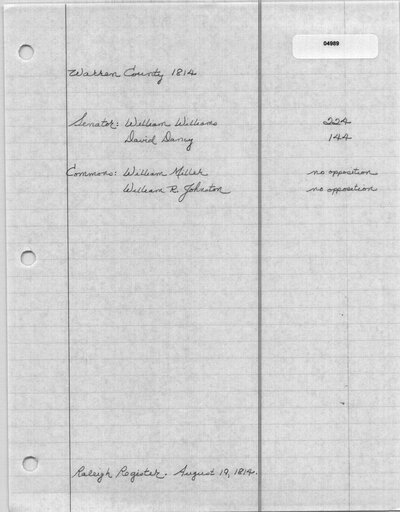 04989
Warren County 1814
Senator: William Williams 224
David Dancy 144
Commons: William Miller no opposition
William R. Johnston no opposition
Raleigh Register. August 19, 1814.